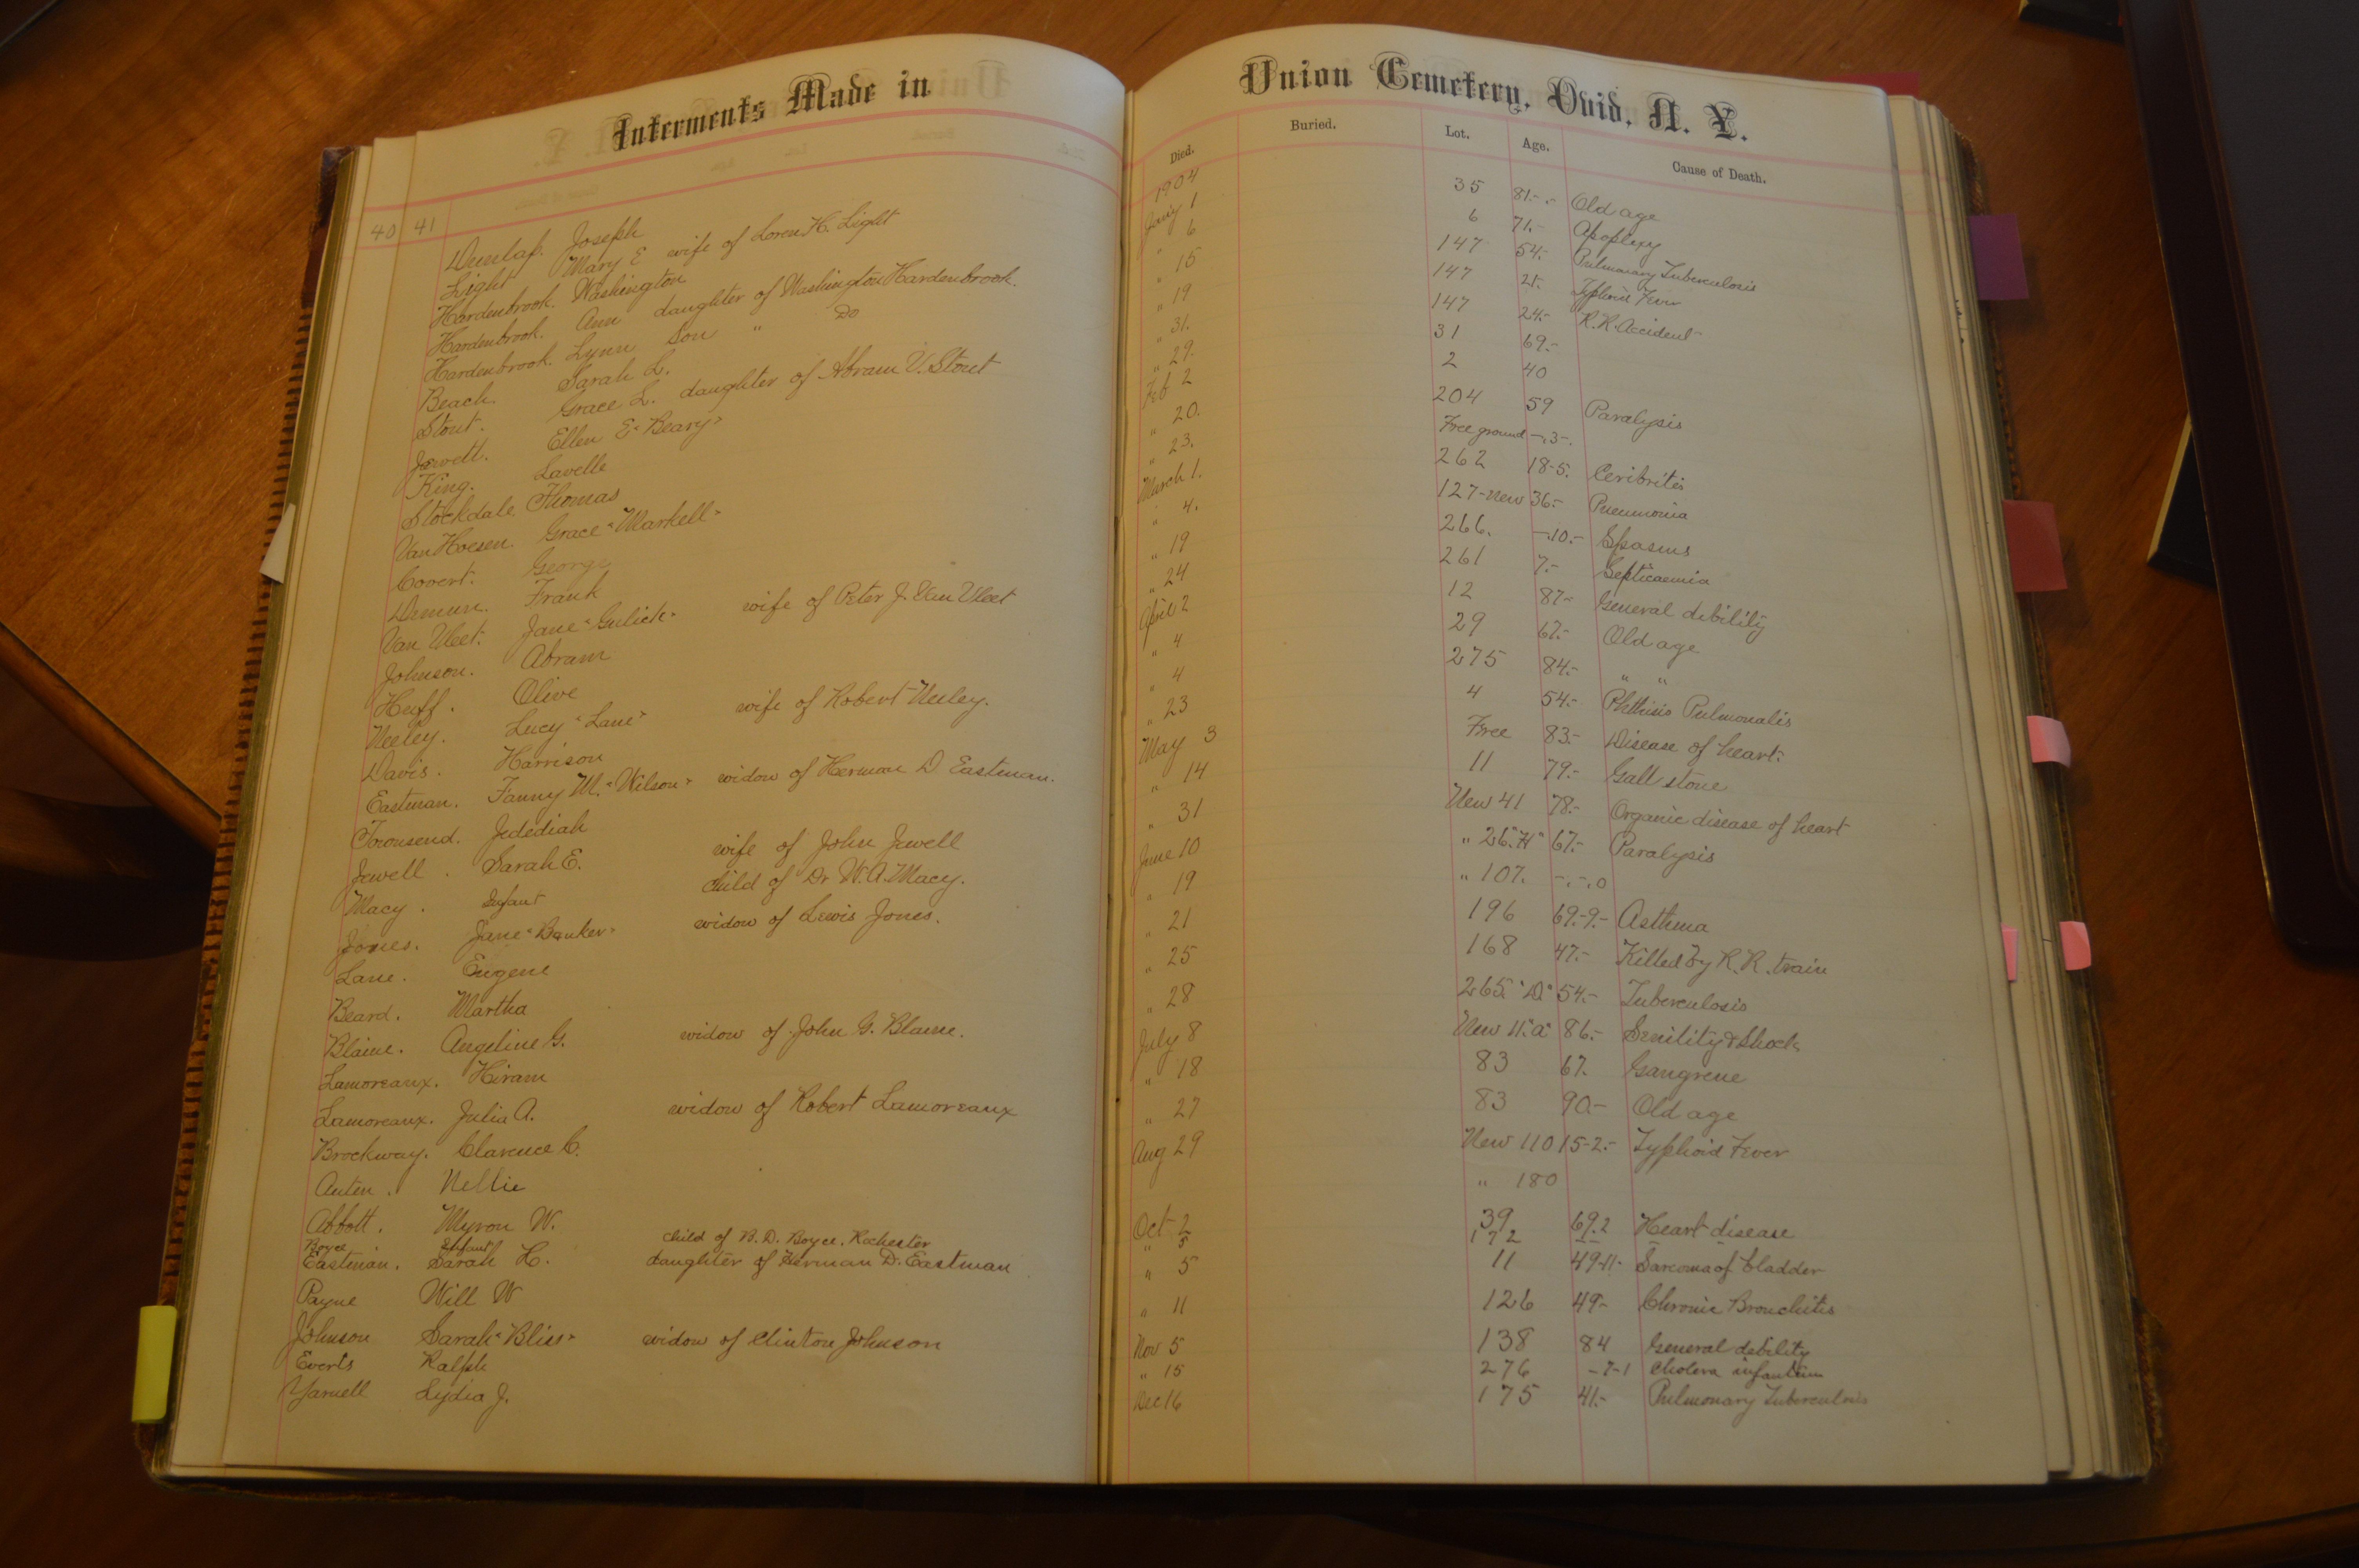 Interments Made in Union Cemetery, Ovid, N. Y.
Died. Buried. Lot. Age. Cause of Death.
40 41
1904
Dunlap. Joseph Jany 1 35 81.-.- Old age
Light Mary E wife of Loren H. Light " 6 6 71.- Apoplexy
Hardenbrook. Washington " 15 147 54.- Pulmonary Tuberculosis
Hardenbrook. Ann daughter of Washington Hardenbrook. " 19 147 21. Typhoid Fever
Hardenbrook. Lynn Son " Do " 31. 147 24.- R.R. Accident
Beach. Sarah L. " 29. 31 69.-
Stout. Grace L. daughter of Abram V. Stout Feb 2 2 40
Jewett. Ellen E "Beary" " 20. 204 59 Paralysis
King. Lavelle " 23. Free ground -.3-.
Stockdale Thomas March 1. 262 18-5. Ceribritis
Van Hoesen. Grace "Markell" " 4. 127-New 36.- Pneumonia
Covert. George " 19 266. -.10.- Spasms
Demun. Frank " 24 261 7.- Septicaemia
Van Vleet. Jane "Gulick" wife of Peter J. Van Vleet April 2 12 87.- General debility
Johnson. Abram " 4 29 67.- Old age
Huff. Olive " 4 275 84.- " "
Neeley. Lucy "Lane" wife of Robert Neeley. " 23 4 54.- Phthisis Pulmonalis
Davis. Harrison May 3 Free 83.- Disease of heart.
Eastman. Fanny M. "Wilson" widow of Herman D. Eastman. " 14 11 79.- Gall stone
Townsend. Jedediah " 31 New 41 78.- Organic disease of heart
Jewell. Sarah E. wife of John Jewell June 10 " 26."H" 67.- Paralysis
Macy. Infant child of Dr W. A. Macy. " 19 " 107. -.-.0
Jones. Jane "Banker" widow of Lewis Jones. " 21 196 69.-9.- Asthma
Lane. Eugene " 25 168 47.- Killed by R. R. train
Beard. Martha " 28 265. "D." 54.- Tuberculosis
Blaine. Angeline G. widow of John G. Blaine. July 8 New 11."a" 86.- Senility & Shock
Lamoreaux. Hiram " 18 83 67. Gangrene
Lamoreaux. Julia A. widow of Robert Lamoreaux " 27 83 90.- Old age
Brockway. Clarence C. Aug 29 New 110 15-2.- Typhoid Fever
Auten. Nellie " 180
Abbott. Myron W. Oct 2 39 69.2 Heart disease
Boyce Infant child of B. D. Boyce, Rochester " 5 172 - - - -
Eastman. Sarah H. daughter of Herman D. Eastman " 5 11 49-11. Sarcoma of bladder
Payne Will W " 11 126 49.- Chronic Bronchitis
Johnson Sarah "Bliss" widow of Clinton Johnson Nov 5 138 84 General debility
Everts Ralph " 15 276 -7-1 Cholera infantum
Yarnell Lydia J. Dec 16 175 41.- Pulmonary Tuberculosis